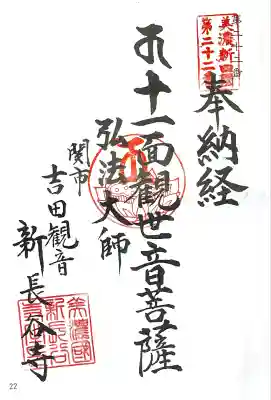 奉納経
美濃新四国
第二十二番
十一面観世音菩薩
弘法大師
関市
吉田観音
新長谷寺
美濃國
新長谷
22